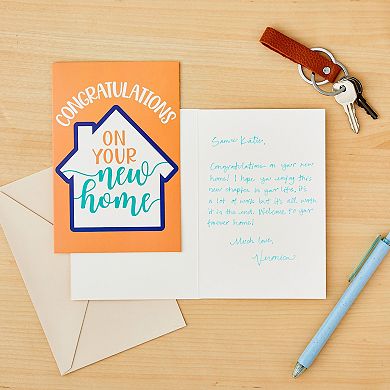 CONGRATULATIONS
ON
YOUR
new
home
Katie,
Congratulations on your new
home! I hope you enjoy this
new chapter in your life, it's
a lot of work but it's all worth
it in the end. Welcome to your
forever home!
Much love,
Veronica